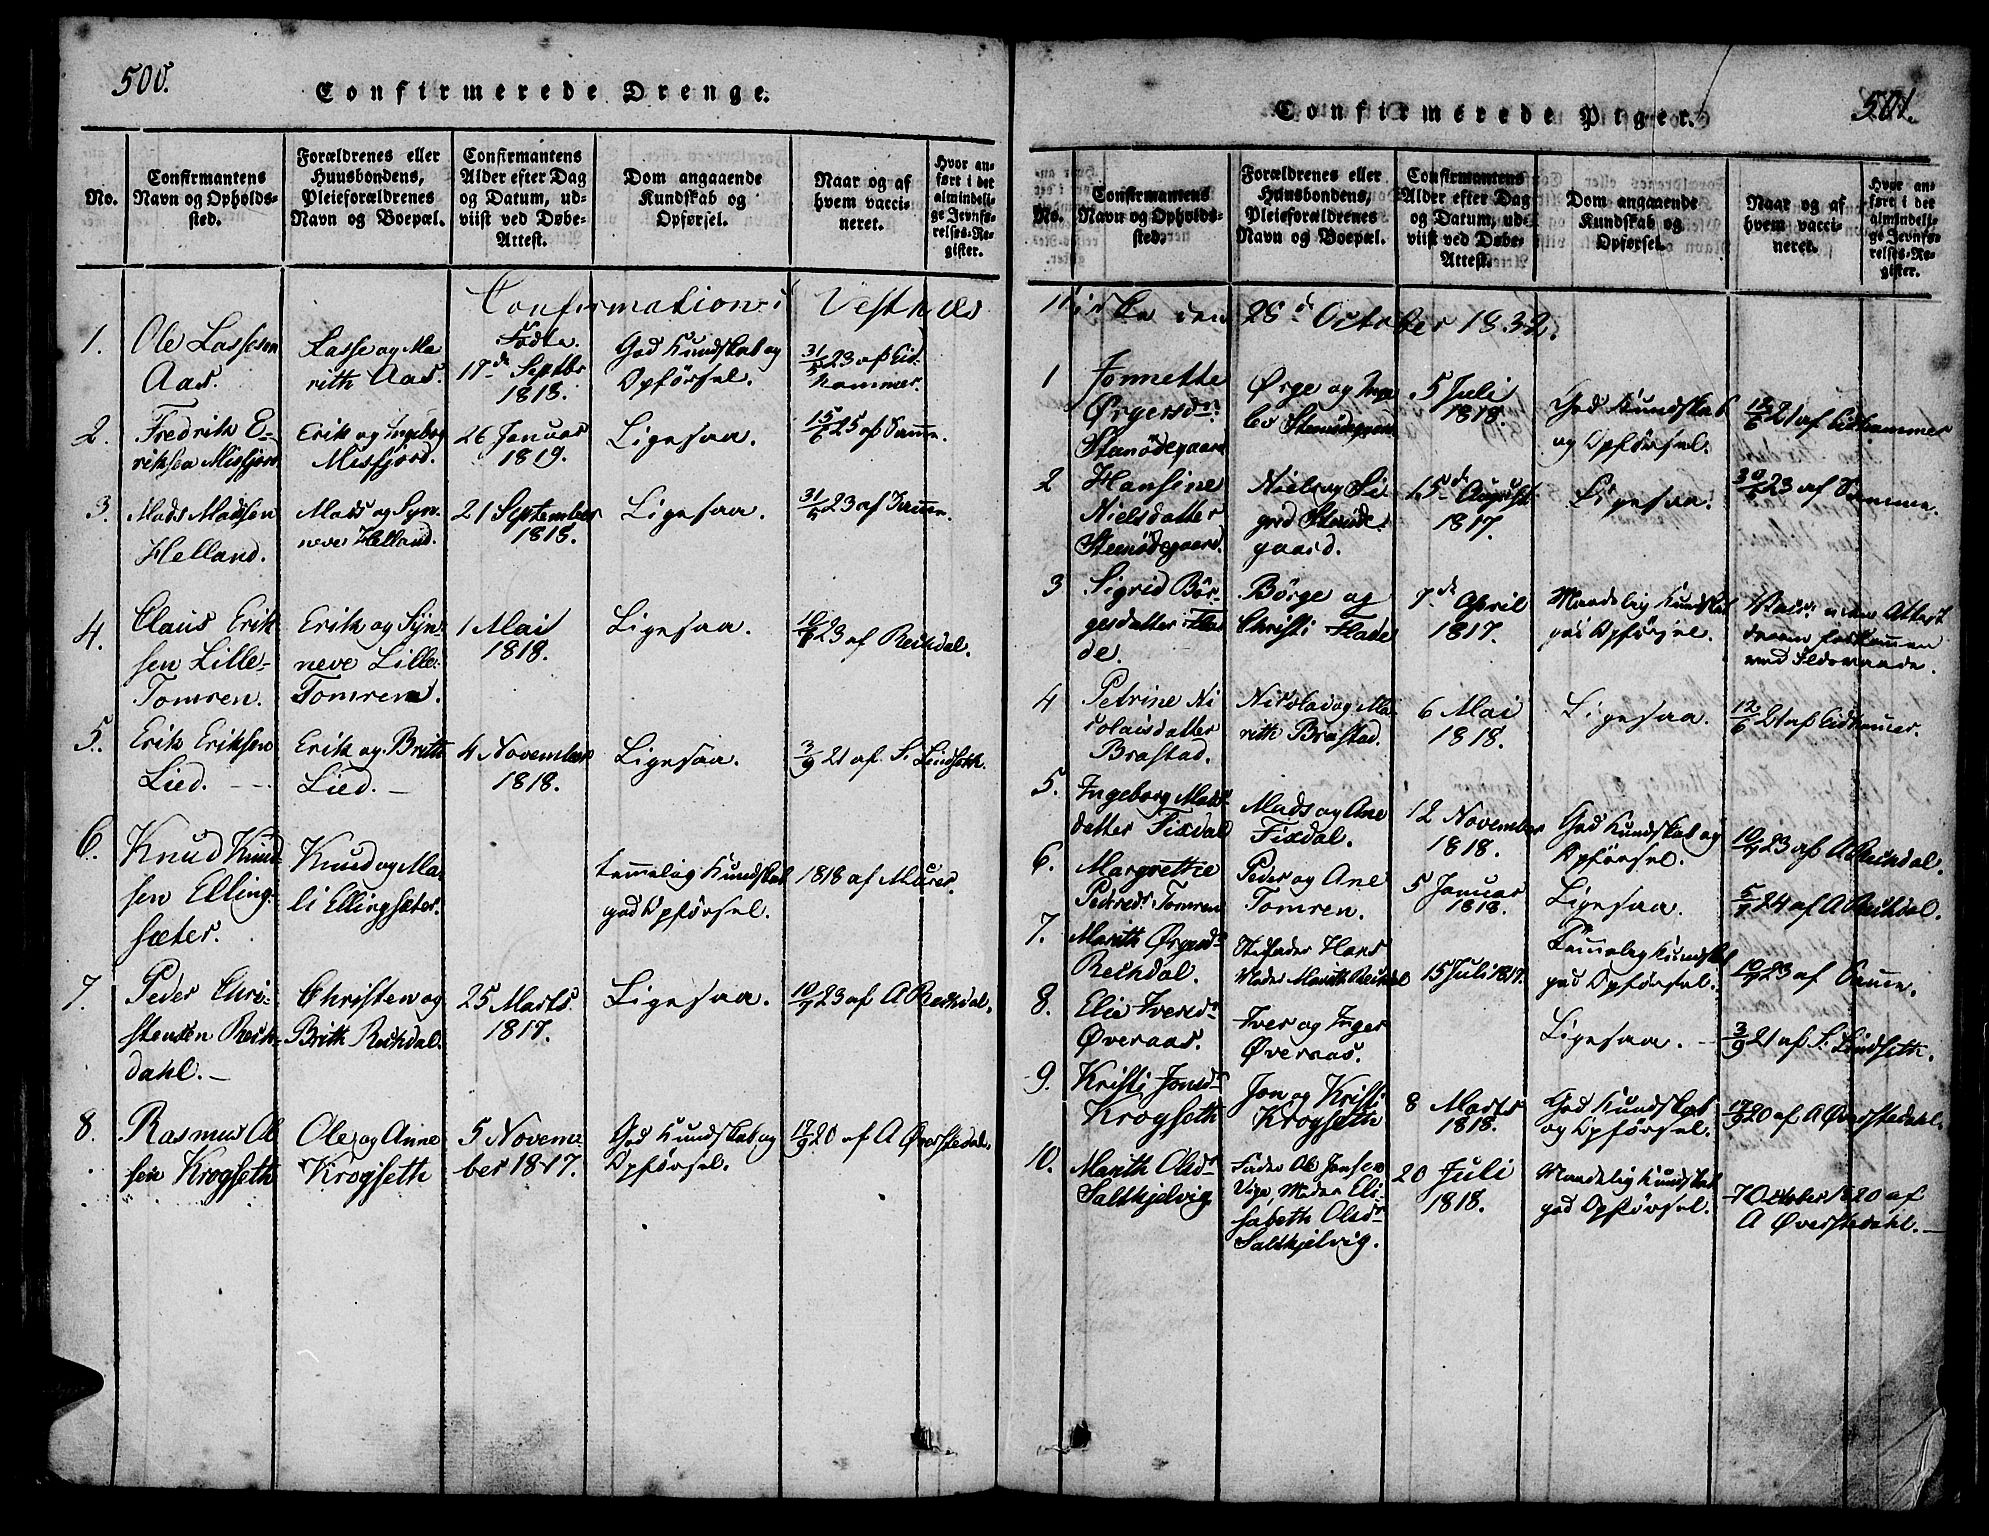 500.
Confirmerede Drenge.
No.
Confirmantens
Navn og Opholds-
sted.
Forældrenes eller
Huusbondens,
Pleieforældrenes
Navn og Boepæl.
Confirmantens
Alder efter Dag
og Datum, ud-
viist ved Døbe-
Attest.
Dom angaaende
Kundskab og
Opførsel.
Naar og af
hvem vacci-
neret.
Hvor an-
ført i det
almindeli-
ge Jevnfø-
relses-Re-
gister.
Confirmation i Vestnæs
1.
Ole Lassesen
Aas.
Lasse og Ma
rith Aas.
Födte.
17de Septbr
1818.
God Kundskab og
Opførsel.
31/5 23 af Eid-
hammer.
2.
Fredrik E-
riksen Misfjord
Erik og Ingeborg
Misfjord.
26 Januar
1819.
Ligesaa.
15/6 25 af Samme.
3.
Mads Madsen
Helland.
Mads og Syn-
neve Helland.
21 September
1818.
Ligesaa.
31/5 23 af Samme.
4.
Claus Erik
sen Lille-
Tomren.
Erik og Syn-
neve Lille-
Tomren.
1 Mai
1818.
Ligesaa.
10/7 23 af Reckdal.
5.
Erik Eriksen
Lied. --
Erik og Britt
Lied. -
4 November
1818.
Ligesaa.
3/9 21 af S. Lindseth.
6.
Knud Knud-
sen Elling-
sæter.
Knud og Ma-
li Ellingsæter.
temmelig Kundskab
god Opførsel.
1818 af Maurer.
7.
Peder Chri-
stensen Reck-
dahl. -
Christen og
Brith Reckdal.
25 Marts
1817.
Ligesaa.
10/7 23 af A Reckdal.
8.
Rasmus Ol
sen Krogseth
Ole og Anne
Krogseth
5 Novem-
ber 1817.
God Kundskab og
Opførsel.
17/9 20 af A Øverstedal.
501.
Confirmerede Piger.
No.
Confirmantens
Navn og Opholds-
sted.
Forældrenes eller
Huusbondens,
Pleieforældrenes
Navn og Boepæl.
Confirmantens
Alder efter Dag
og Datum, ud-
viist ved Døbe-
Attest.
Dom angaaende
Kundskab og
Opførsel.
Naar og af
hvem vacci-
neret.
Hvor an-
ført i det
almindeli-
ge Jevnfø-
relses-Re-
gister.
Kirke den 28de October 1832.
1
Jonnette
Ørgersdr
Stenödegaard
Ørge og Inge
bor Stenödegaard
5 Juli
1818.
God Kundskab
og Opførsel.
12/6 21 af Eidhammer
2
Hansine
Nielsdatter
Stenödegaard.
Niels og Si
grid Stenöde-
gaard.
15de August
1817.
Ligesaa.
30/5 23 af Samme.
3
Sigrid Bör-
gesdatter Fla
de.
Börge og
Christi Flade
7de April
1817.
Maadelig Kundskab
god Opførsel.
Attest
ved Ildsvaade.
4
Petrine Ni
colaisdatter
Brastad.
Nikolai og Ma-
rith Brastad.
6 Mai
1818.
Ligesaa.
12/6 21 af Eidhamer.
5.
Ingeborg Mads-
datter Fixdal
Mads og Ane
Fixdal.
12 November
1818.
God Kundskab og
Opførsel.
10/7 23 af A Reckdal.
6.
Margrethe
Pedersdr Tomren
Peder og Ane
Tomren.
5 Januar
1818.
Ligesaa.
5/7 24 af A Reckdal.
7.
Marith Ørgersdr
Reckdal.
Stedfader Hans
Moder Marith Reckdal
15 Juli 1817.
Temmelig Kundskab
god Opførsel.
10/7 23 af Samme.
8.
Elie Iversdr
Øveraas.
Iver og Inger
Øveraas.
Ligesaa. -
3/9 21 af S. Lindseth.
9.
Kristi Jonsdr
Krogseth
Jon og Kristi
Krogseth
8 Marts
1818.
God Kundskab
og Opførsel.
17/9 20 af A Øverstedahl.
10.
Marith Olsdr
Saltkjelvig
Fader Ole Jensen
Vige, Moder Eli-
sabeth Olsdr
Saltkjelvig.
20 Juli
1818.
Maadelig Kundskab
god Opførsel.
7 October 1820 af
A Øverstedahl. -